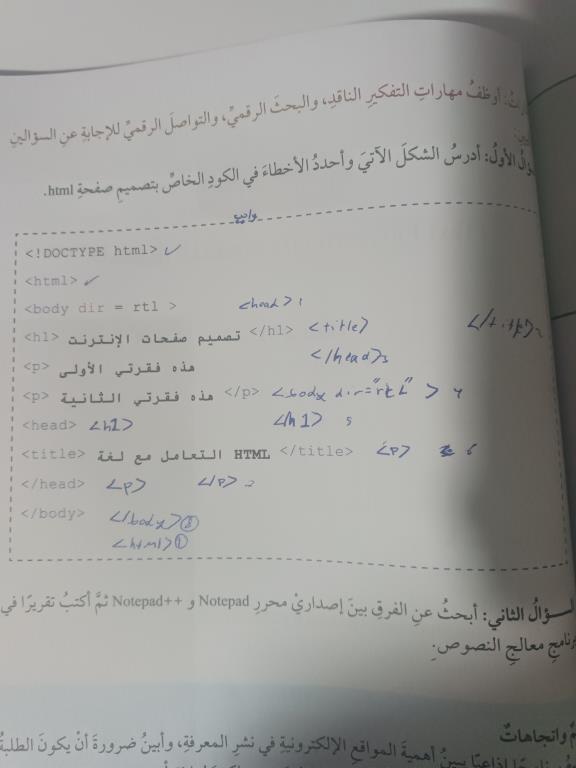 أوظفُ مهاراتِ التفكيرِ الناقدِ، والبحثَ الرقميِّ، والتواصلَ الرقميِّ للإجابةِ عنِ السؤالينِ
الأولُ: أدرسُ الشكلَ الآتيَ وأحددُ الأخطاءَ في الكودِ الخاصِّ بتصميمِ صفحةِ html.
واجب
<!DOCTYPE html> ✓
<html> ✓
<body dir = rtl > <head> 1
<h1> تصميم صفحات الإنترنت </h1> <title> </title> 2
<p> هذه فقرتي الأولى </head> 3
<p> هذه فقرتي الثانية </p> <body dir="rtL" > 4
<head> <h1> </h1> 5
<title> التعامل مع لغة HTML </title> <p> 6
</head> <p> </p>
</body> </body> 8
<html>
السؤالُ الثاني: أبحثُ عنِ الفرقِ بينَ إصداريْ محررِ Notepad و Notepad++ ثمَّ أكتبُ تقريرًا في
برنامجِ معالجِ النصوصِ.
واتجاهاتٌ
إذاعيًا يبينُ أهميةَ المواقعِ الإلكترونيةِ في نشرِ المعرفةِ، وأبينُ ضرورةَ أنْ يكونَ الطلبةُ